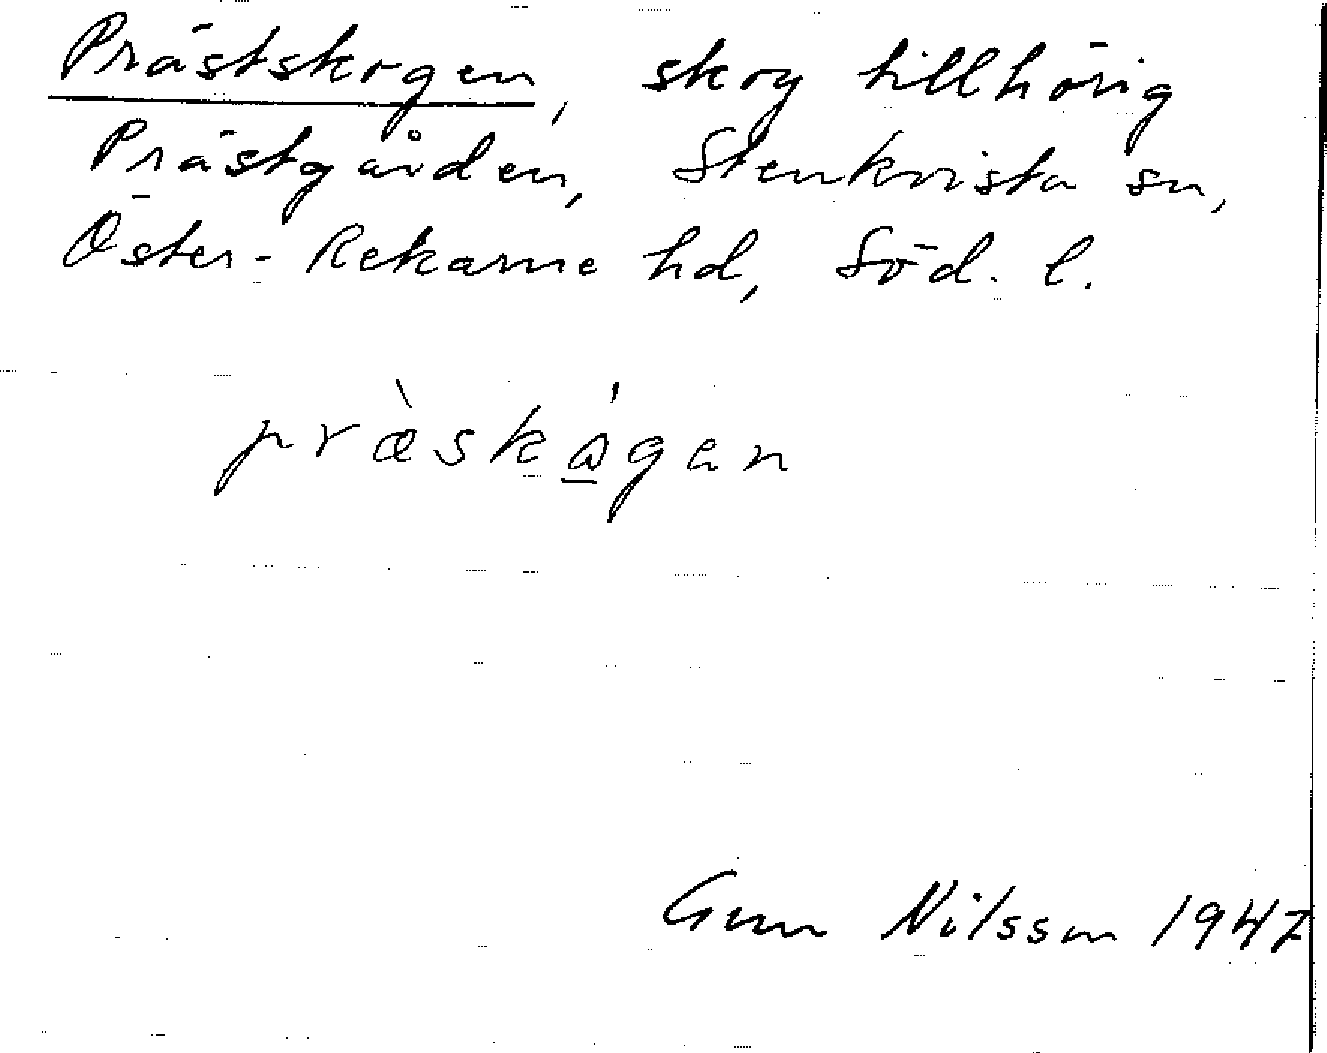 Prästskogen, skog tillhörig
Prästgården, Stenkvista sn,
Öster-Rekarne hd, Söd. l.
præ̀skǻgen
Gun Nilsson 1947